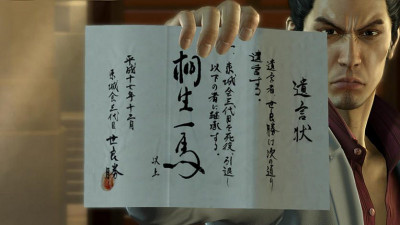 遺言状
遺言者 世良勝は次の通り
遺言する。
東城会三代目を死後、引退し
以下の者に継承する。
桐生一馬
以上
平成十七年十二月
東城会三代目 世良勝